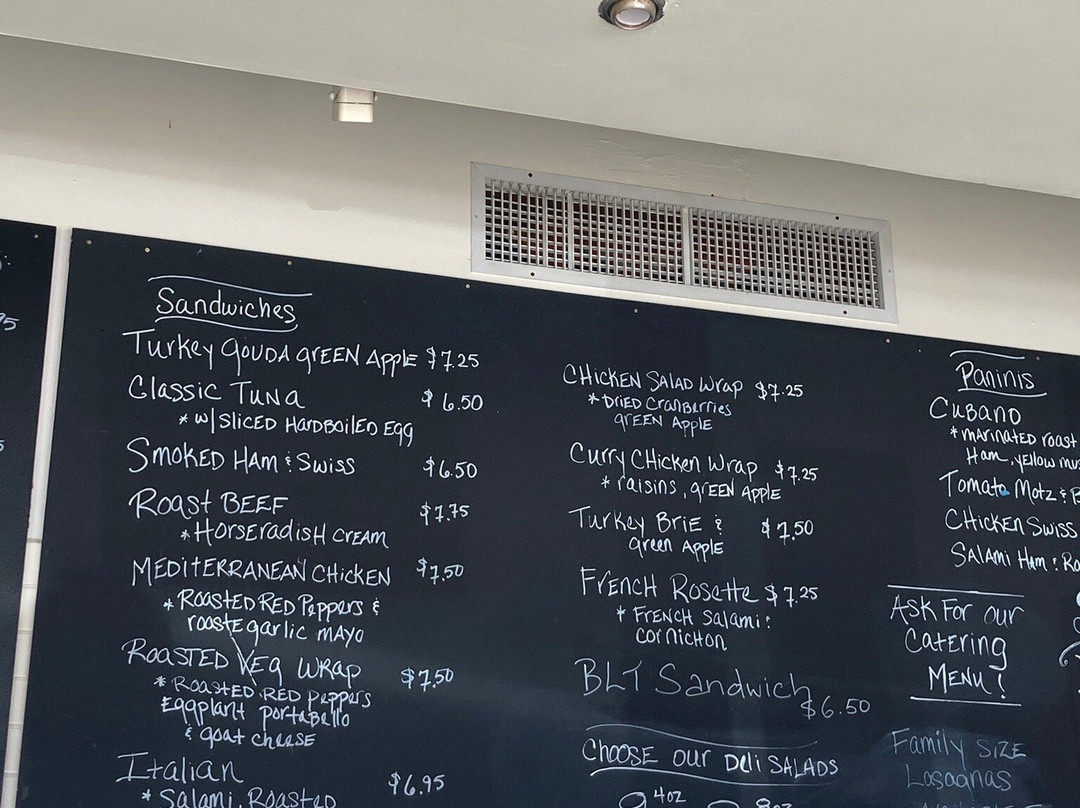 Sandwiches
Turkey Gouda green Apple $7.25
Classic Tuna $6.50
* w/ sliced Hardboiled Egg
Smoked Ham & Swiss $6.50
Roast Beef $7.75
* Horseradish cream
Mediterranean Chicken $7.50
* Roasted Red Peppers &
roaste garlic mayo
Roasted Veg Wrap $7.50
* Roasted Red Peppers
Eggplant portabello
& goat cheese
Italian $6.95
* Salami, Roasted
Chicken Salad Wrap $7.25
* Dried Cranberries
green Apple
Curry Chicken Wrap $7.25
* raisins, green Apple
Turkey Brie & $7.50
green Apple
French Rosette $7.25
* French Salami &
cornichon
BLT Sandwich
$6.50
Choose our Deli Salads
4oz 8oz
Paninis
Cubano
* marinated roast
Ham, yellow mus
Tomato Motz &
Chicken Swiss
Salami Ham & Ro
Ask For our
Catering
Menu!
Family Size
Lasagnas